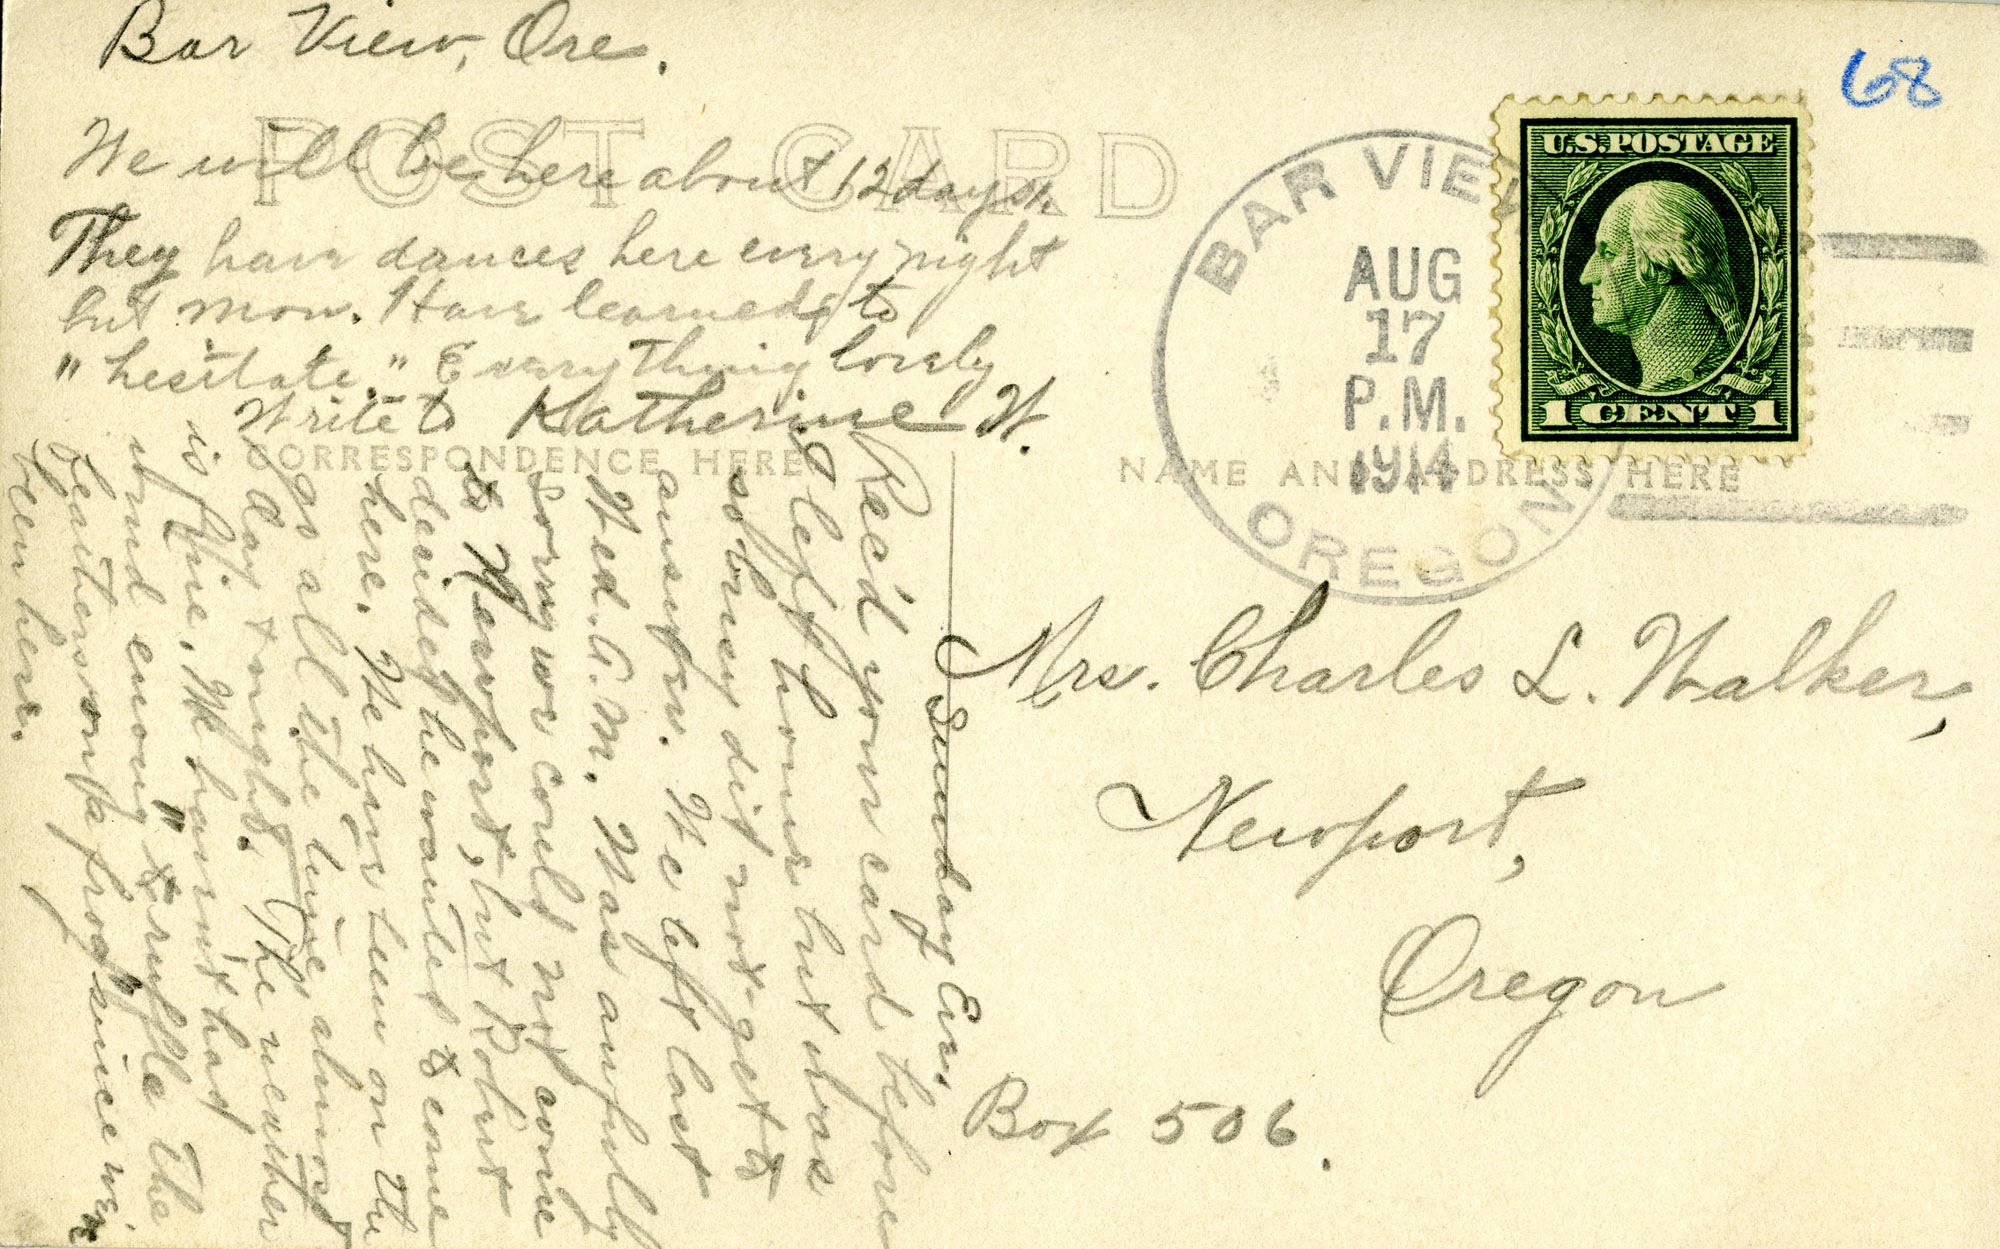 Bar View, Ore.
68
POST CARD
We will be here about 12 days.
They have dances here every night
but Mon. Have learned to
"hesitate." Everything lovely
Write to Katherine W.
CORRESPONDENCE HERE
NAME AND ADDRESS HERE
BAR VIEW
AUG
17
P.M.
1914
OREGON
U.S. POSTAGE
1 CENT 1
Mrs. Charles L. Walker,
Newport,
Oregon
Box 506.
Sunday Eve.
Rec'd your card before
I left home but was
so busy did not get to
answer. We left last
Wed. A.M. Was awfully
sorry we could not come
to Newport, but Robert
decided he wanted to come
here. We have been on the
go all the time almost
day & night. The weather
is fine. We haven't had
wind enough to "ruffle the
feathers on a frog" since we've
been here.